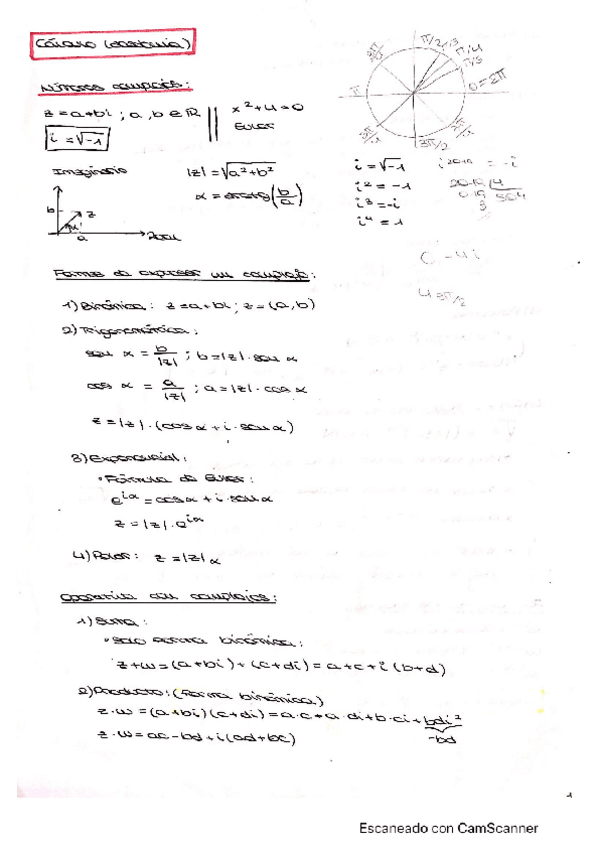 Cálculo (
Números complejos:
z = a+bi ; a, b ∈ ℝ || x²+4=0
Euler
i = √-1
π/2
π/3
π/4
π
0=2π
3π/2
Imaginario
|z| = √a²+b²
α = arctg (b/a)
b
z
a
Real
i = √-1
i² = -1
i³ = -i
i⁴ = 1
= -i
2019 |4
3 504
-4i
4 3π/2
Formas de expresar un complejo:
1) Binómica: z = a+bi ; z = (a, b)
2) Trigonométrica:
sen α = b/|z| ; b = |z| · sen α
cos α = a/|z| ; a = |z| · cos α
z = |z| · (cos α + i · sen α)
3) Exponencial:
• Fórmula de Euler:
e^iα = cos α + i · sen α
z = |z| · e^iα
4) Polar: z = |z|α
Operativa con complejos:
1) Suma:
• Solo forma binómica:
z+w = (a+bi) + (c+di) = a+c+i(b+d)
2) Producto: (Forma binómica)
z·w = (a+bi)(c+di) = a·c+a·di+b·ci+bdi²
-bd
z·w = ac-bd+i(ad+bc)
1
Escaneado con CamScanner